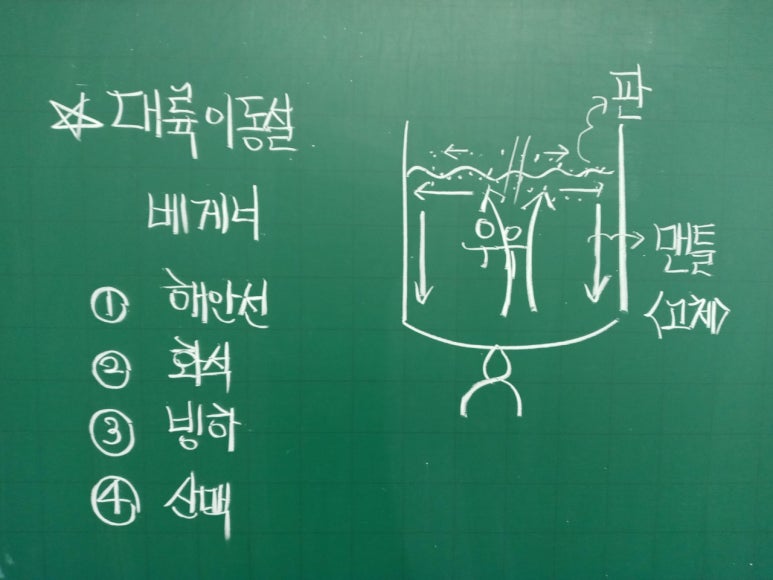 ☆ 대륙이동설
베게너
① 해안선
② 화석
③ 빙하
④ 산맥
판
우유
맨틀
<고체>